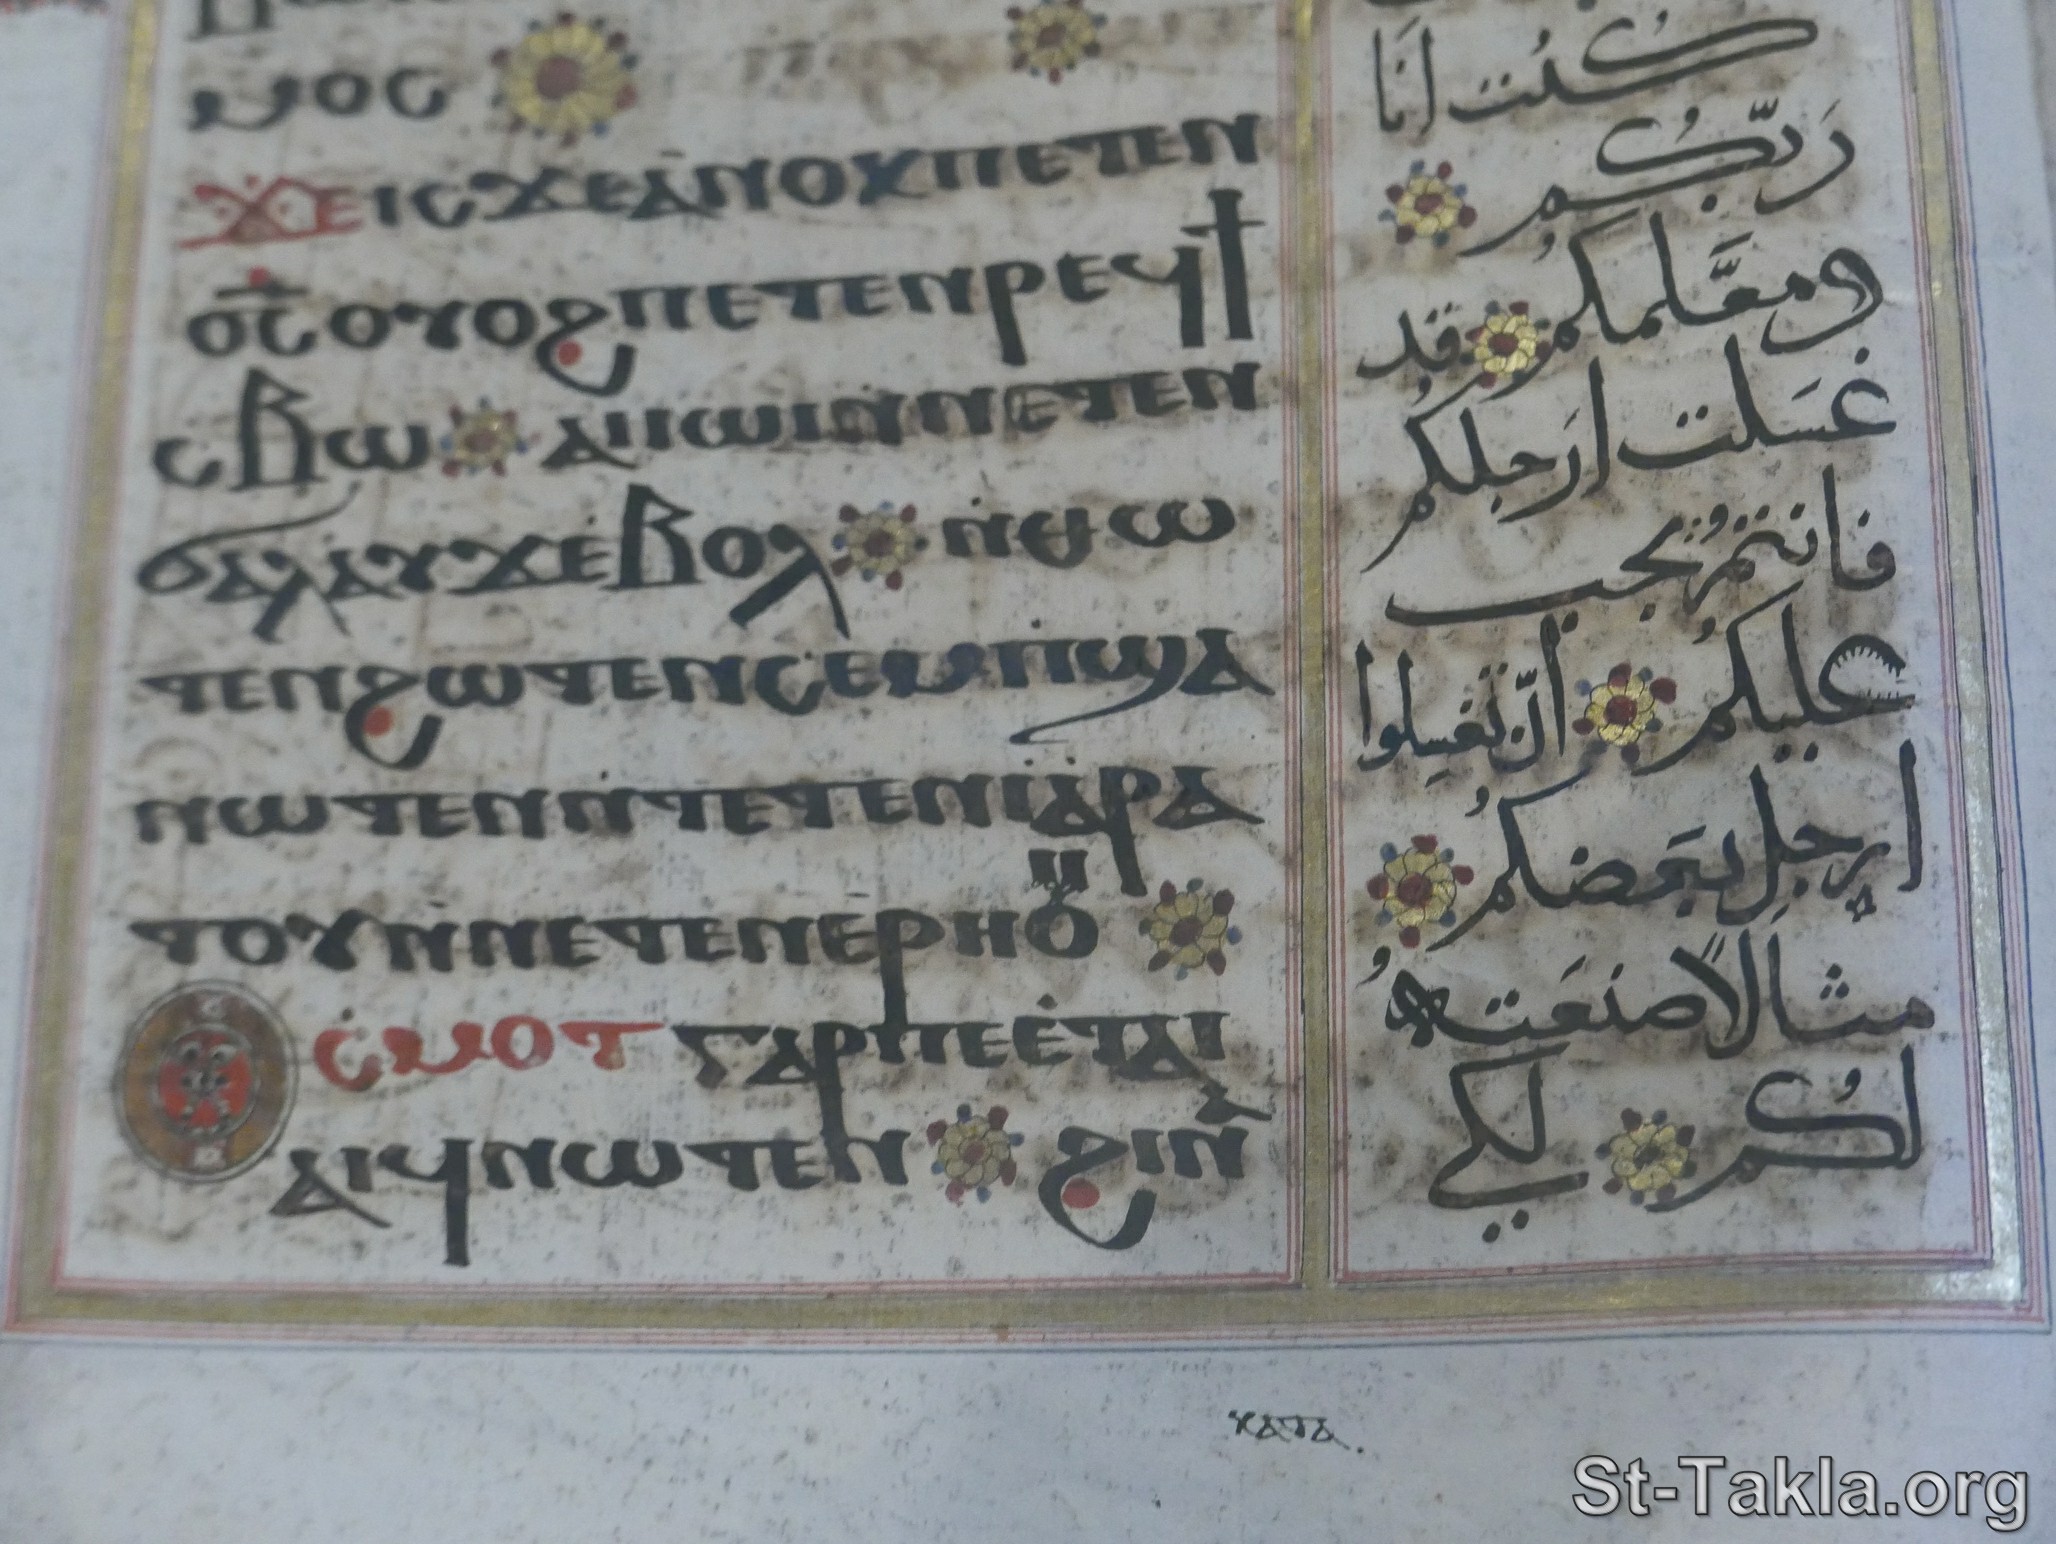 ⲙⲟⲥ
ⲓⲥϫⲉⲁⲛⲟⲕⲡⲉⲧⲉⲛ
ⲟ̅ⲥ̅ⲟⲩⲟϩⲡⲉⲧⲉⲛⲣⲉϥϯ
ⲥⲃⲱ ⲁⲓⲓⲱⲓⲛⲛⲉⲧⲉⲛ
ϭⲁⲗⲁⲩϫⲉⲃⲟⲗ ⲛ̇ⲑⲱ
ⲧⲉⲛϩⲱⲧⲉⲛⲥⲉⲙⲡϣⲁ
ⲛⲱⲧⲉⲛⲛ̇ⲧⲉⲧⲉⲛⲓ̇ⲁⲣⲁ
ⲧⲟⲩⲛ̇ⲛⲉⲧⲉⲛⲉ̇ⲣⲏⲟⲩ
ⲥ̇ⲙⲟⲧ ⲅⲁⲣⲡⲉⲉ̇ⲧⲁⲓ
ⲁⲓϥⲛⲱⲧⲉⲛ ϩⲓⲛⲁ
كُنت اَنَا
رَبّكُم
ومعَّلمكُم قد
غسَلت ارَجلكُم
فانتمُ يجب
عليكُم انّ تغسِلوا
ارجلِ بعَضكُم
مثالاً صنعَتهُ
لكُم لكي
ⲕⲁⲧⲁ.
St-Takla.org